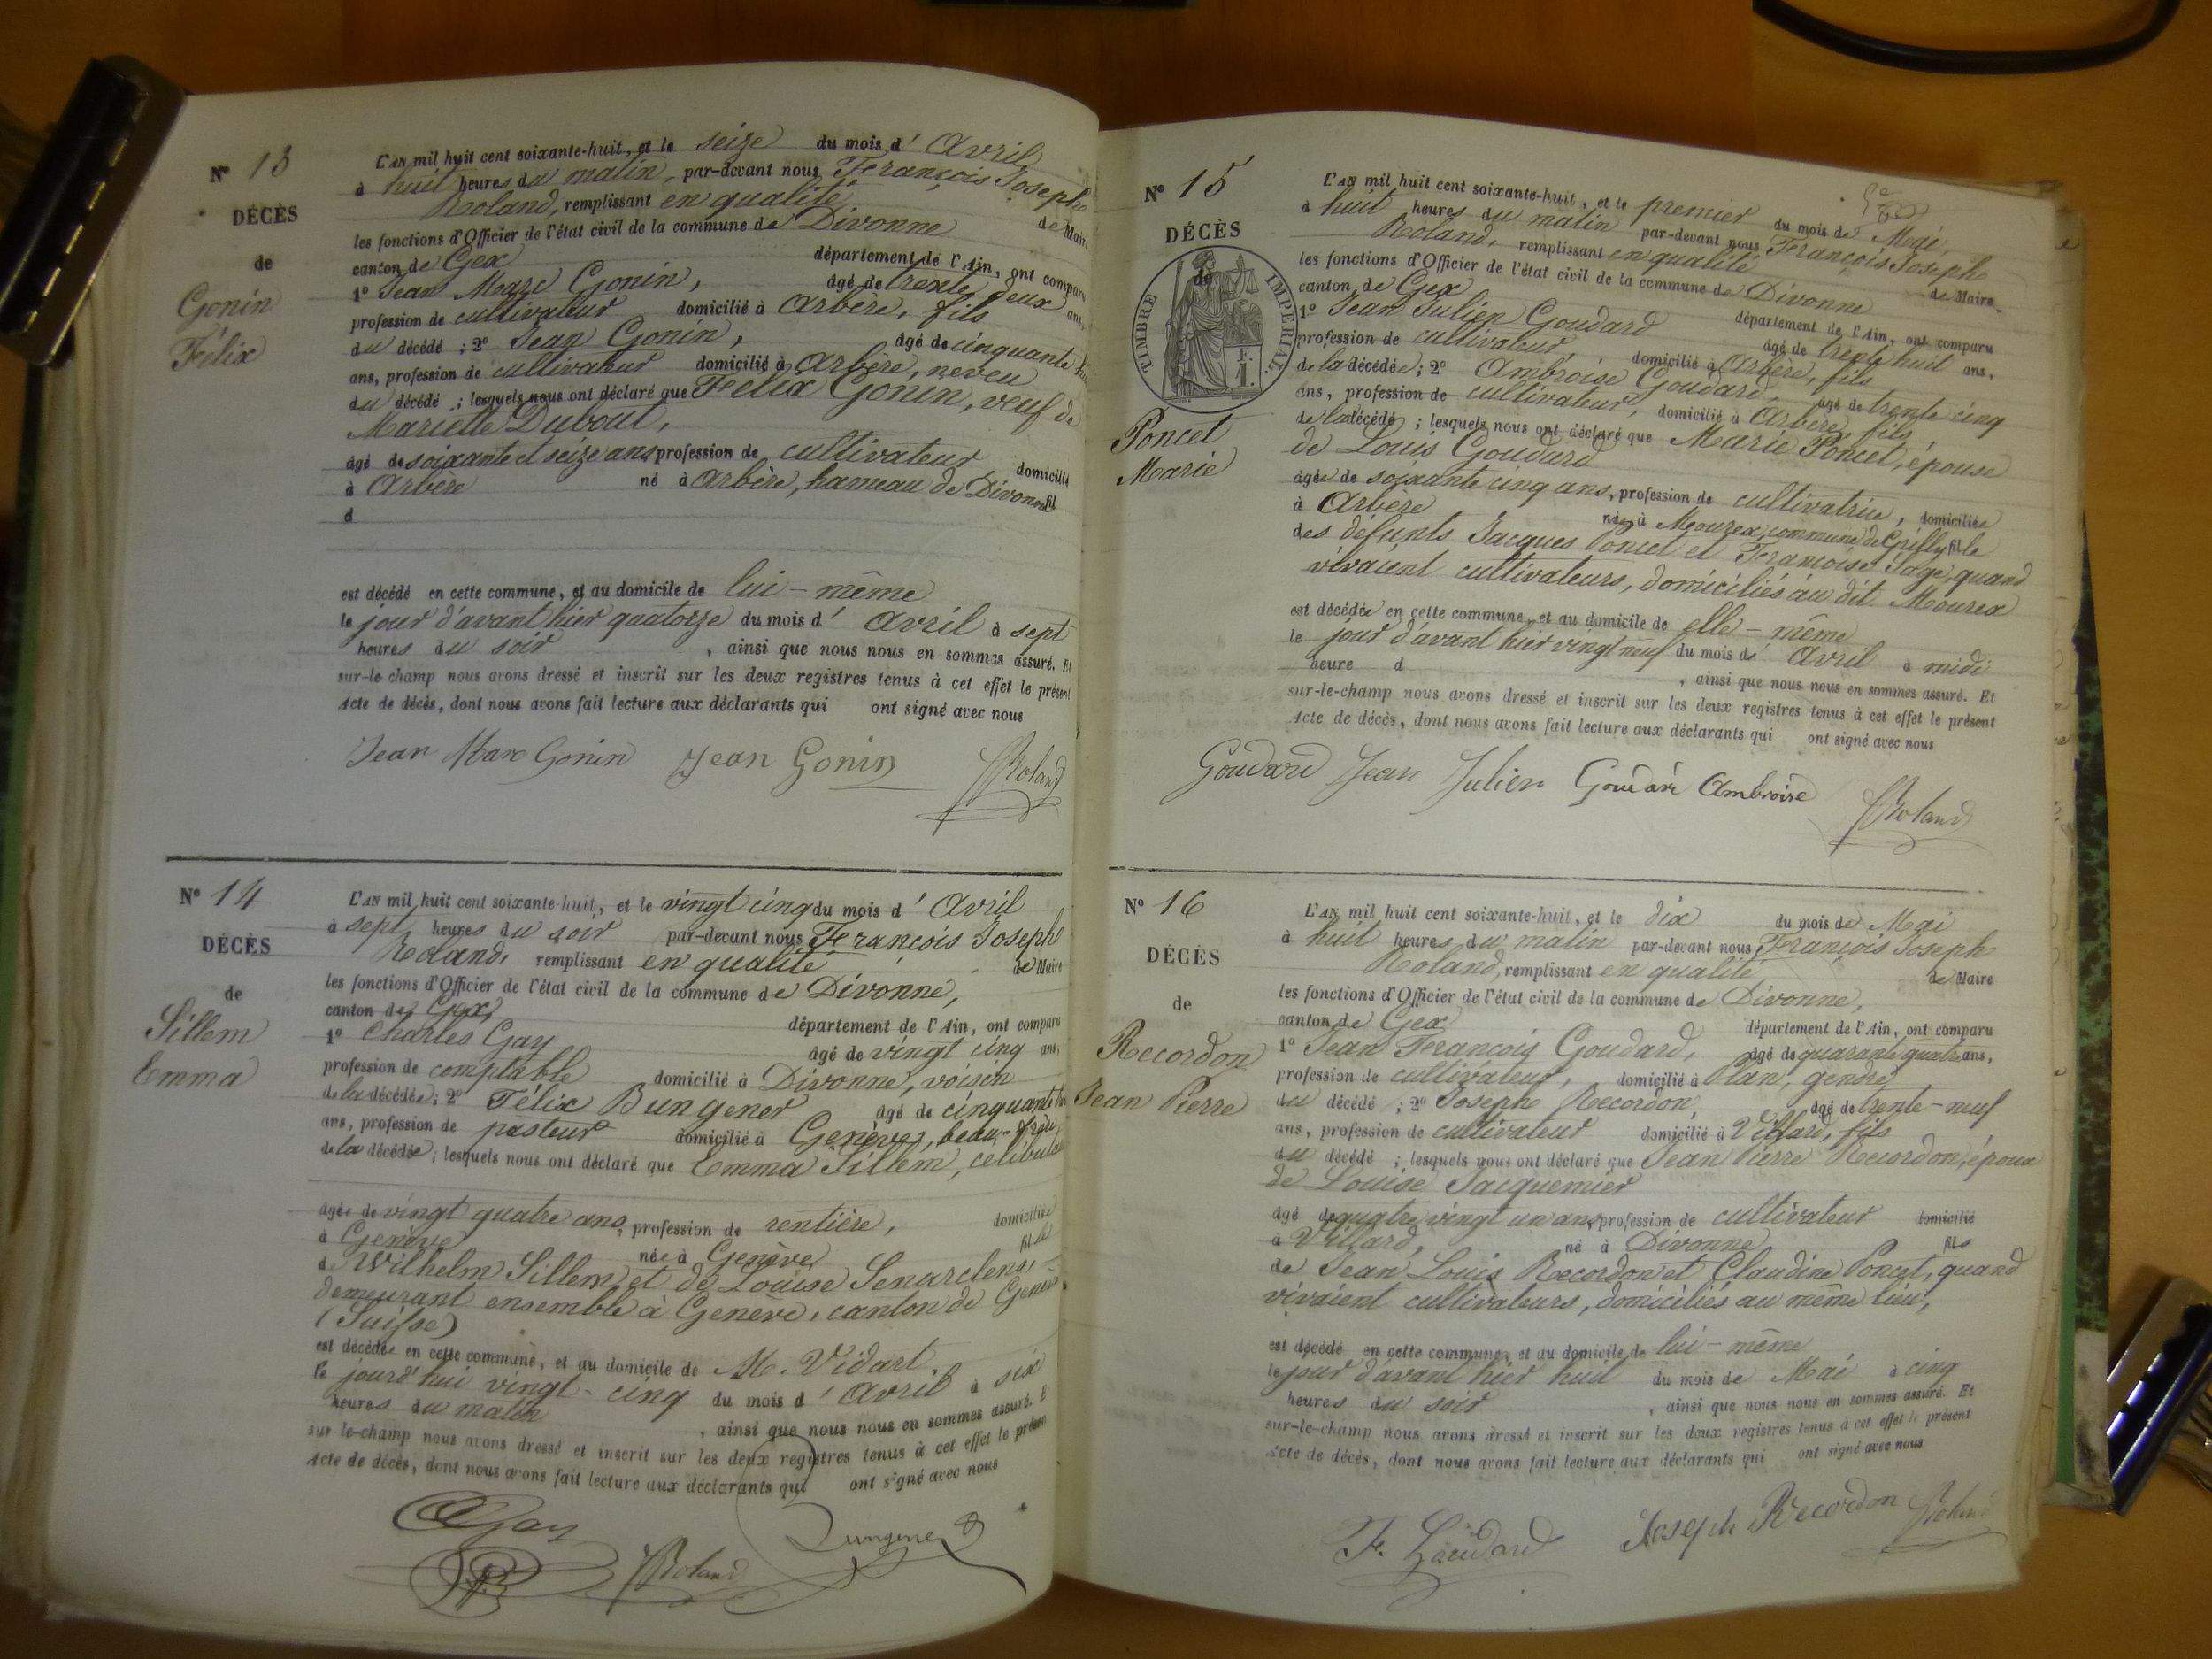 N° 13
DÉCÈS
de
Gonin
Félix
L'AN mil huit cent soixante-huit, et le seize du mois d' Avril
à huit heures du matin, par-devant nous François Joseph
Roland, remplissant en qualité de Maire
les fonctions d'Officier de l'état civil de la commune de Divonne
canton de Gex département de l'Ain, ont comparu
1° Jean Marc Gonin, âgé de trente deux ans,
profession de cultivateur domicilié à Arbère, fils
du décédé ; 2° Jean Gonin, âgé de cinquante
ans, profession de cultivateur domicilié à Arbère, neveu
du décédé ; lesquels nous ont déclaré que Félix Gonin, veuf de
Mariette Dubout,
âgé de soixante et seize ans, profession de cultivateur domicilié
à Arbère né à Arbère, hameau de Divonne fil
d
est décédé en cette commune, et au domicile de lui-même
le jour d'avant hier quatorze du mois d' Avril à sept
heures du soir , ainsi que nous nous en sommes assuré. Et
sur-le-champ nous avons dressé et inscrit sur les deux registres tenus à cet effet le présent
Acte de décès, dont nous avons fait lecture aux déclarants qui ont signé avec nous
Jean Marc Gonin Jean Gonin Roland
N° 14
DÉCÈS
de
Sillem
Emma
L'AN mil huit cent soixante-huit, et le vingt cinq du mois d' Avril
à sept heures du soir par-devant nous François Joseph
Roland, remplissant en qualité de Maire
les fonctions d'Officier de l'état civil de la commune de Divonne,
canton de Gex, département de l'Ain, ont comparu
1° Charles Gay âgé de vingt cinq ans,
profession de comptable domicilié à Divonne, voisin
de la décédée ; 2° Félix Bungener âgé de cinquante
ans, profession de pasteur domicilié à Genève, beau-frère
de la décédée ; lesquels nous ont déclaré que Emma Sillem, célibataire
âgée de vingt quatre ans, profession de rentière, domiciliée
à Genève née à Genève fille
de Wilhelm Sillem et de Louise Senarclens,
demeurant ensemble à Genève, canton de Genève
(Suisse)
est décédée en cette commune, et au domicile de M. Vidart,
le jourd'hui vingt-cinq du mois d' Avril à six
heures du matin , ainsi que nous nous en sommes assuré. E
sur-le-champ nous avons dressé et inscrit sur les deux registres tenus à cet effet le présent
Acte de décès, dont nous avons fait lecture aux déclarants qui ont signé avec nous
Gay Bungener
Roland
N° 15
DÉCÈS
de
TIMBRE IMPERIAL
Poncet
Marie
L'AN mil huit cent soixante-huit, et le premier du mois de Mai
à huit heures du matin par-devant nous François Joseph
Roland, remplissant en qualité de Maire
les fonctions d'Officier de l'état civil de la commune de Divonne
canton de Gex département de l'Ain, ont comparu
1° Jean Julien Goudard âgé de trente huit ans,
profession de cultivateur, domicilié à Arbère, fils
de la décédée ; 2° Ambroise Goudard, âgé de trente cinq
ans, profession de cultivateur, domicilié à Arbère, fils
de la décédé ; lesquels nous ont déclaré que Marie Poncet, épouse
de Louis Goudard
âgée de soixante cinq ans, profession de cultivatrice, domiciliée
à Arbère née à Mourex, commune de Grilly fille
des défunts Jacques Poncet et Françoise Sage, quand
vivaient cultivateurs, domiciliés au dit Mourex
est décédée en cette commune, et au domicile de elle-même
le jour d'avant hier vingt neuf du mois d' Avril à midi
heure d , ainsi que nous nous en sommes assuré. Et
sur-le-champ nous avons dressé et inscrit sur les deux registres tenus à cet effet le présent
Acte de décès, dont nous avons fait lecture aux déclarants qui ont signé avec nous
Goudard Jean Julien Goudard Ambroise Roland
N° 16
DÉCÈS
de
Recordon
Jean Pierre
L'AN mil huit cent soixante-huit, et le dix du mois de Mai
à huit heures du matin par-devant nous, François Joseph
Roland, remplissant en qualité de Maire
les fonctions d'Officier de l'état civil de la commune de Divonne,
canton de Gex département de l'Ain, ont comparu
1° Jean François Goudard, âgé de quarante quatre ans,
profession de cultivateur, domicilié à Plan, gendre
du décédé ; 2° Joseph Recordon, âgé de trente-neuf
ans, profession de cultivateur domicilié à Villard, fils
du décédé ; lesquels nous ont déclaré que Jean Pierre Recordon, époux
de Louise Jacquemier
âgé de quatre vingt un ans, profession de cultivateur domicilié
à Villard, né à Divonne fils
de Jean Louis Recordon et Claudine Poncet, quand
vivaient cultivateurs, domiciliés au même lieu,
est décédé en cette commune, et au domicile de lui-même
le jour d'avant hier huit du mois de Mai à cinq
heures du soir , ainsi que nous nous en sommes assuré. Et
sur-le-champ nous avons dressé et inscrit sur les deux registres tenus à cet effet le présent
Acte de décès, dont nous avons fait lecture aux déclarants qui ont signé avec nous
F. Goudard Joseph Recordon Roland